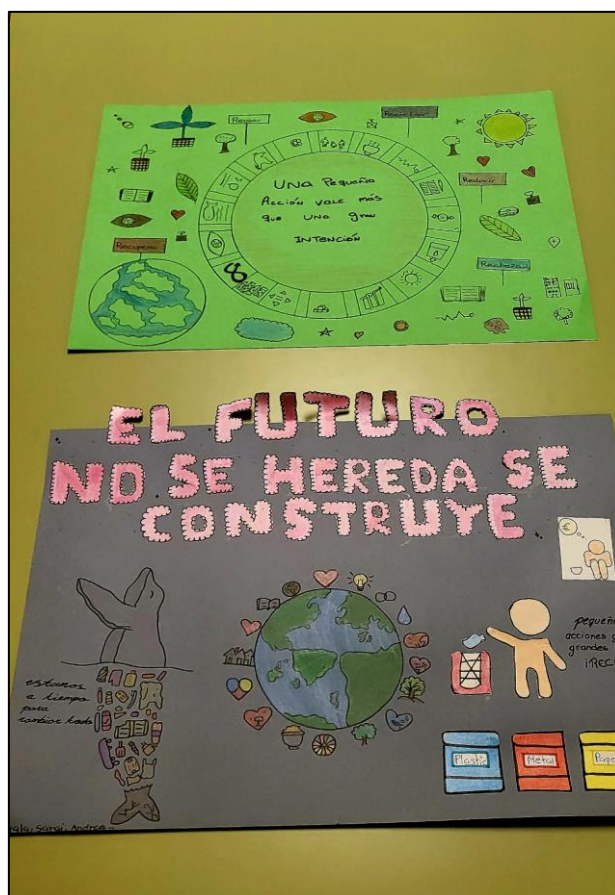 Reusar
Reciclar
Reducir
Rechazar
Recuperar
UNA Pequeña
Acción vale más
que una gran
INTENCIÓN
EL FUTURO
NO SE HEREDA SE
CONSTRUYE
€
estamos
a tiempo
para
cambiar todo
pequeñ
acciones g
grandes
¡REC
Plastic
Metal
Pape
Sarai, Andrea